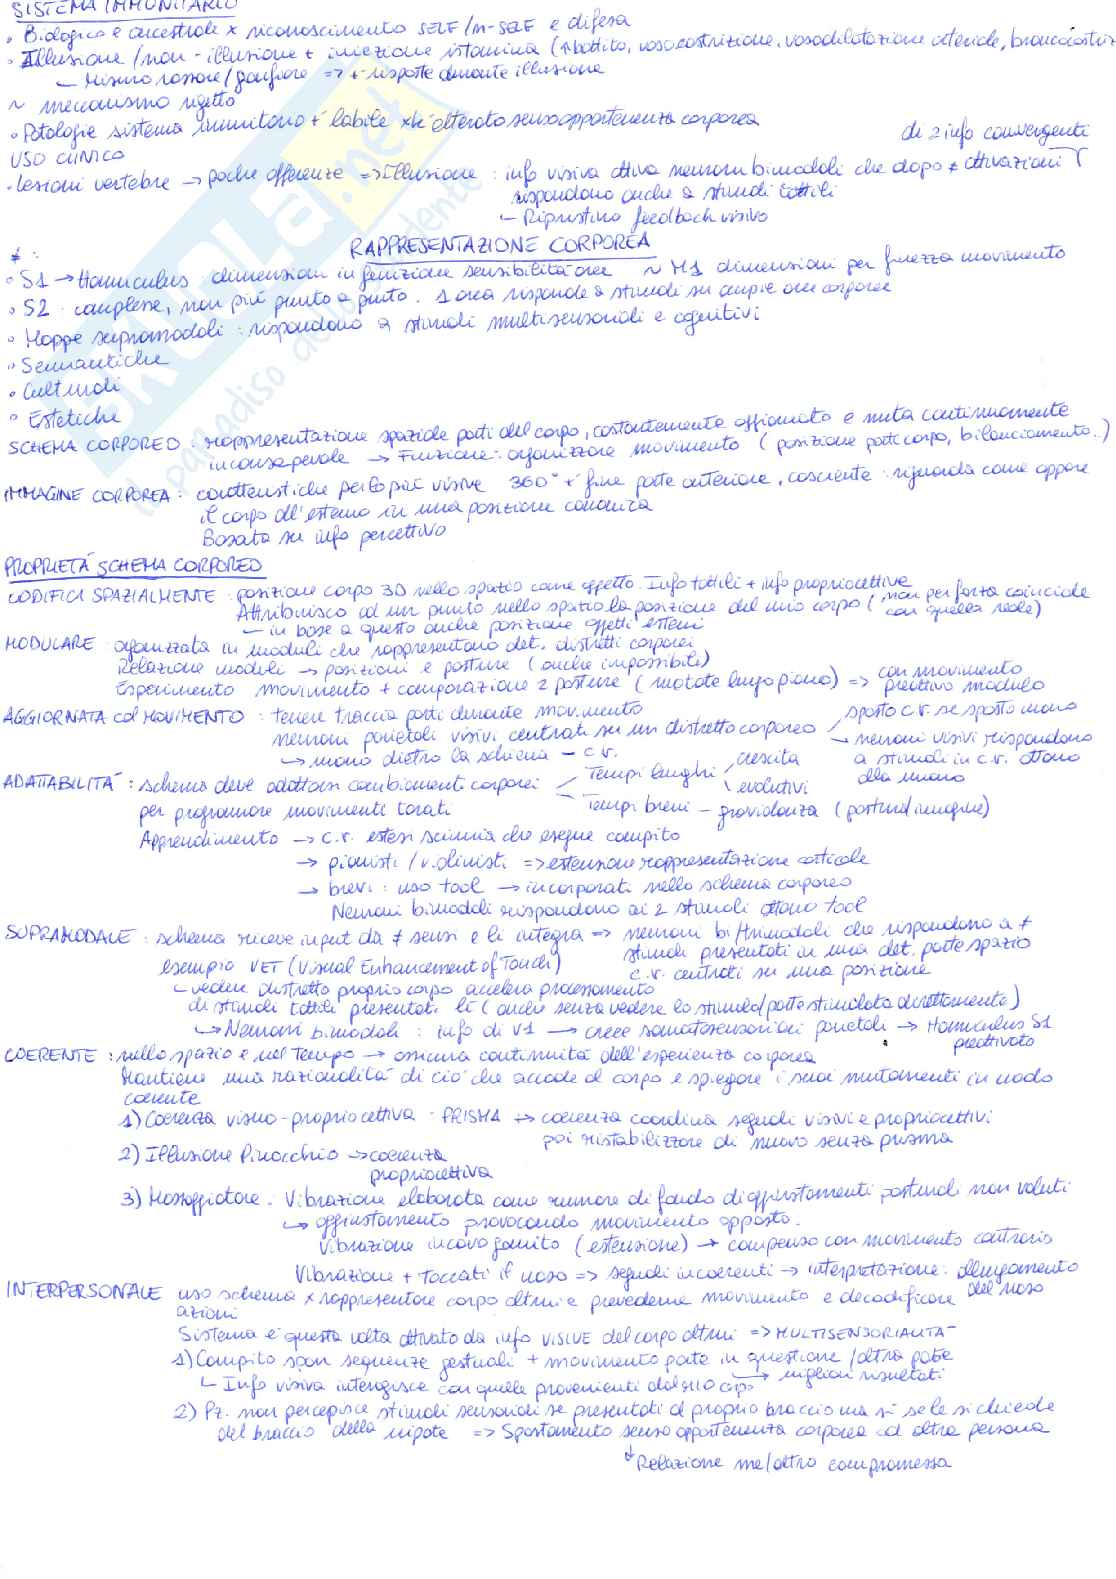 SISTEMA IMMUNITARIO
• Biologico e ancestrale x riconoscimento SELF/N-SELF e difesa
• Illusione/non-illusione + iniezione istamina (↑battito, vasocostrizione, vasodilatazione arteriole, broncocostriz
↳ Misuro rossore/gonfiore => + risposte durante illusione
~ meccanismo rigetto
• Patologie sistema immunitario + labile xké alterato senso appartenenza corporea
USO CLINICO
di 2 info convergenti
• Lesioni vertebre → poche afferenze => Illusione: info visiva attiva neuroni bimodali che dopo ≠ attivazioni
rispondono anche a stimoli tattili
↳ Ripristino feedback visivo
RAPPRESENTAZIONE CORPOREA
≠ :
• S1 → Homuculus: dimensioni in funzione sensibilità aree ~ M1 dimensioni per finezza movimento
• S2 complesse, non più punto a punto. 1 area risponde a stimoli su ampie aree corporee
• Mappe supramodali: rispondono a stimoli multisensoriali e cognitivi
• Semantiche
• Culturali
• Estetiche
SCHEMA CORPOREO: rappresentazione spaziale parti del corpo, costantemente aggiornato e muta continuamente
inconsapevole → Funzione: organizzare movimento (posizione parti corpo, bilanciamento..)
IMMAGINE CORPOREA: caratteristiche per lo più visive 360° + fine parte anteriore, cosciente: riguarda come appare
il corpo all'esterno in una posizione canonica
Basata su info percettivo
PROPRIETÀ SCHEMA CORPOREO
CODIFICA SPAZIALMENTE: posizione corpo 3D nello spazio come oggetto. Info tattili + info propriocettive
Attribuisco ad un punto nello spazio la posizione del mio corpo (non per forza coincide con quella reale)
↳ in base a questo anche posizione oggetti esterni
MODULARE: organizzata in moduli che rappresentano det. distretti corporei
Relazione moduli → posizioni e posture (anche impossibili)
Esperimento movimento + comparazione 2 posture (ruotate lungo piano) => con movimento preattivo modulo
AGGIORNATA COL MOVIMENTO: tenere traccia parti durante movimento
neuroni parietali visivi centrati su un distretto corporeo / sposto c.r. se sposto mano
↳ mano dietro la schiena - c.r. → neuroni visivi rispondono a stimoli in c.r. attorno alla mano
ADATTABILITÀ: schema deve adattarsi cambiamenti corporei / Tempi lunghi / crescita \ evolutivi
per programmare movimenti tarati \ Tempi brevi - gravidanza (postura/immagine)
Apprendimento → c.r. estesi scimmia che esegue compito
→ pianisti/violinisti => estensione rappresentazione corticale
→ brevi: uso tool → incorporati nello schema corporeo
Neuroni bimodali rispondono ai 2 stimoli attorno tool
SUPRAMODALE: schema riceve input da ≠ sensi e li integra => neuroni bi/trimodali che rispondono a ≠
stimoli presentati in una det. parte spazio
esempio VET (Visual Enhancement of Touch) c.r. centrati su una posizione
↳ vedere distretto proprio corpo accelera processamento
di stimoli tattili presentati lì (anche senza vedere lo stimolo/parte stimolata direttamente)
↳ Neuroni bimodali: info di V1 → aree somatosensoriali parietali → Homuculus S1 preattivato
COERENTE: nello spazio e nel tempo → assicura continuità dell'esperienza corporea
Mantiene una razionalità di ciò che accade al corpo e spiegare i suoi mutamenti in modo
coerente
1) Coerenza visuo-propriocettiva - PRISMA → coerenza coordina segnali visivi e propriocettivi
poi ristabilizzare di nuovo senza prisma
2) Illusione Pinocchio → coerenza
propriocettiva
3) Massaggiatore. Vibrazione elaborata come rumore di fondo di aggiustamenti posturali non voluti
↳ aggiustamento provocando movimento opposto.
Vibrazione incavo gomito (estensione) → compenso con movimento contrario
Vibrazione + toccati il naso => segnali incoerenti → interpretazione: allungamento del naso
INTERPERSONALE uso schema x rappresentare corpo altrui e prevederne movimento e decodificare
azioni
Sistema è questa volta attivato da info VISIVE del corpo altrui => MULTISENSORIALITÀ
1) Compito span sequenze gestuali + movimento parte in questione/altra parte
↳ Info visiva interagisce con quelle provenienti dal suo corpo → migliori risultati
2) Pz. non percepisce stimoli sensoriali se presentati al proprio braccio ma sì se le si chiede
del braccio della nipote => Spostamento senso appartenenza corporea ad altra persona
↓ Relazione me/altro compromessa